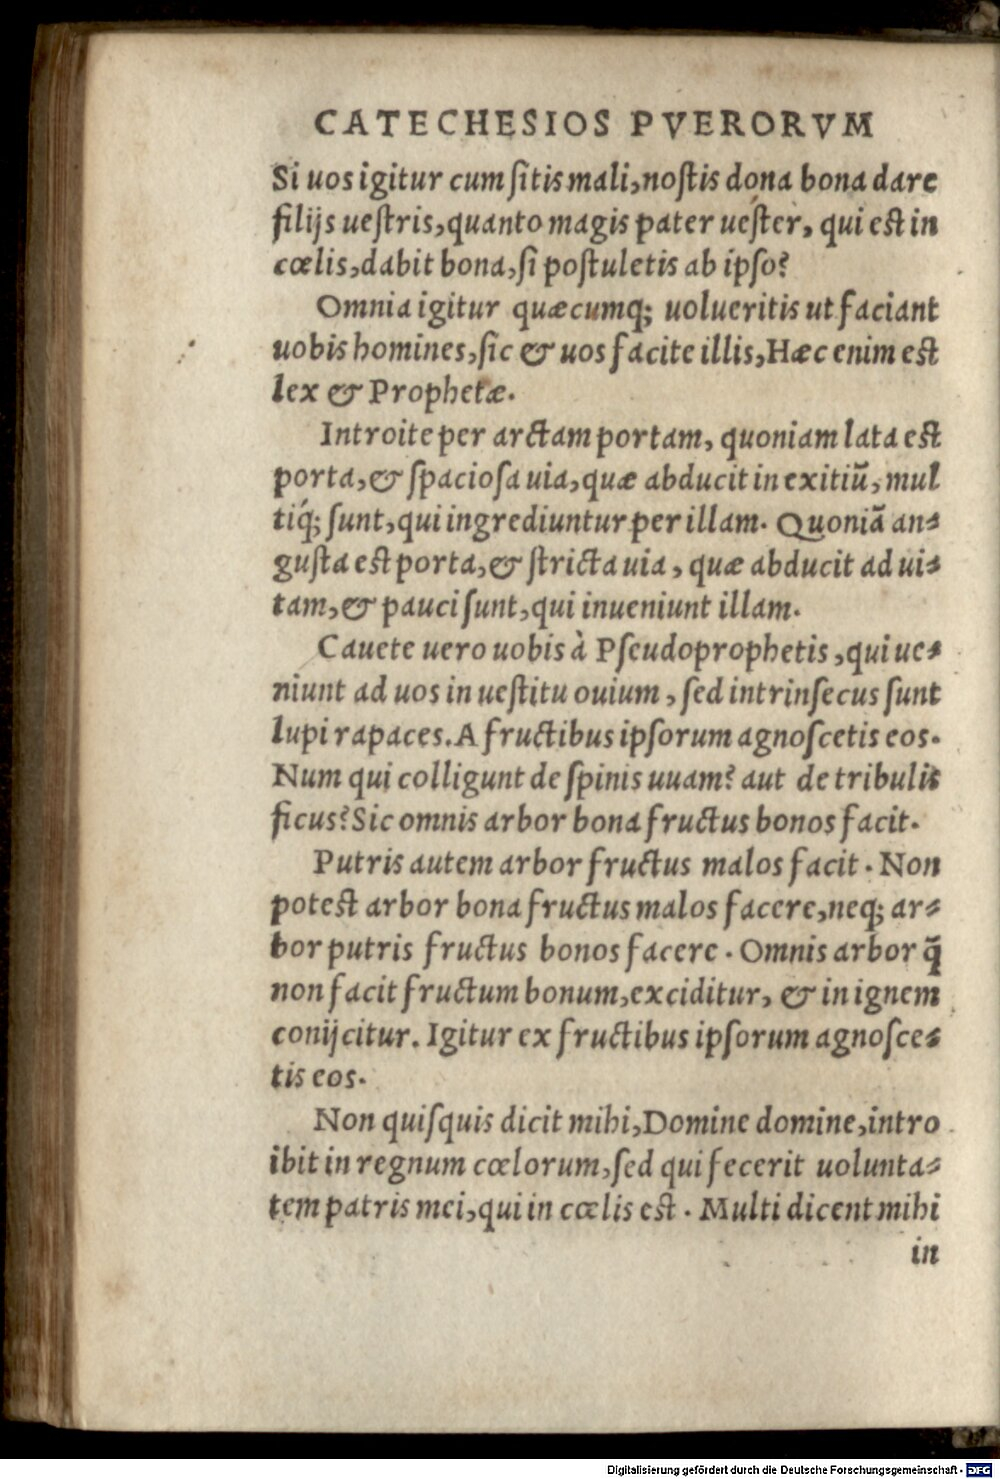 CATECHESIOS PVERORVM
Si uos igitur cum ſitis mali, noſtis dona bona dare
filijs ueſtris, quanto magis pater ueſter, qui eſt in
cœlis, dabit bona, ſi poſtuletis ab ipſo?
Omnia igitur quæcumq; uolueritis ut faciant
uobis homines, ſic & uos facite illis, Hæc enim eſt
lex & Prophetæ.
Introite per arctam portam, quoniam lata eſt
porta, & ſpacioſa uia, quæ abducit in exitiũ, mul
tiq́; ſunt, qui ingrediuntur per illam. Quoniã an⸗
guſta eſt porta, & ſtricta uia, quæ abducit ad ui⸗
tam, & pauci ſunt, qui inueniunt illam.
Cauete uero uobis à Pſeudoprophetis, qui ue⸗
niunt ad uos in ueſtitu ouium, ſed intrinſecus ſunt
lupi rapaces. A fructibus ipſorum agnoſcetis eos.
Num qui colligunt de ſpinis uuam? aut de tribulis
ficus? Sic omnis arbor bona fructus bonos facit.
Putris autem arbor fructus malos facit. Non
poteſt arbor bona fructus malos facere, neq; ar⸗
bor putris fructus bonos facere. Omnis arbor q̃
non facit fructum bonum, exciditur, & in ignem
conijcitur. Igitur ex fructibus ipſorum agnoſce⸗
tis eos.
Non quiſquis dicit mihi, Domine domine, intro
ibit in regnum cœlorum, ſed qui fecerit uolunta⸗
tem patris mei, qui in cœlis eſt. Multi dicent mihi
in
Digitalisierung gefördert durch die Deutsche Forschungsgemeinschaft - DFG